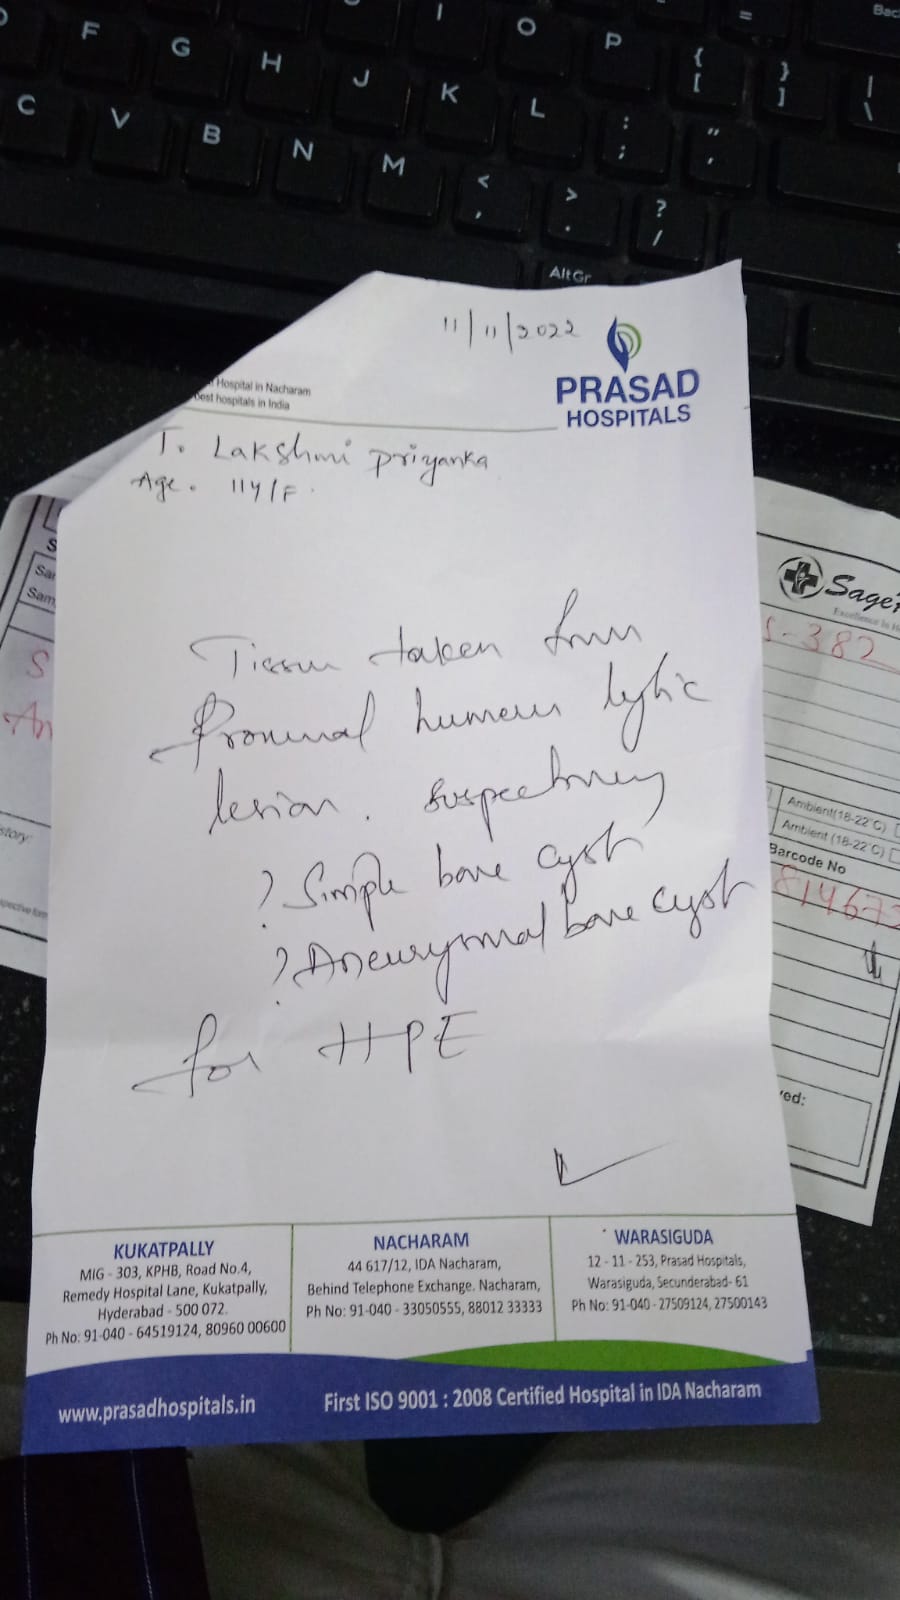 F G H J K L O P I
C V B N M
AltGr
Bac
11/11/2022
Hospital in Nacharam
best hospitals in India
PRASAD
HOSPITALS
T. Lakshmi Priyanka
Age. 11Y/F.
Tissue taken from
Proximal humerus lytic
lesion. suspecting
? Simple bone cyst
? Aneurysmal bone cyst
for HPE
KUKATPALLY
MIG - 303, KPHB, Road No.4,
Remedy Hospital Lane, Kukatpally,
Hyderabad - 500 072.
Ph No: 91-040 - 64519124, 80960 00600
NACHARAM
44 617/12, IDA Nacharam,
Behind Telephone Exchange. Nacharam,
Ph No: 91-040 - 33050555, 88012 33333
WARASIGUDA
12 - 11 - 253, Prasad Hospitals,
Warasiguda, Secunderabad- 61
Ph No: 91-040 - 27509124, 27500143
www.prasadhospitals.in
First ISO 9001 : 2008 Certified Hospital in IDA Nacharam
Sage
S-382
Ambient(18-22°C)
Ambient (18-22°C)
Barcode No
814673